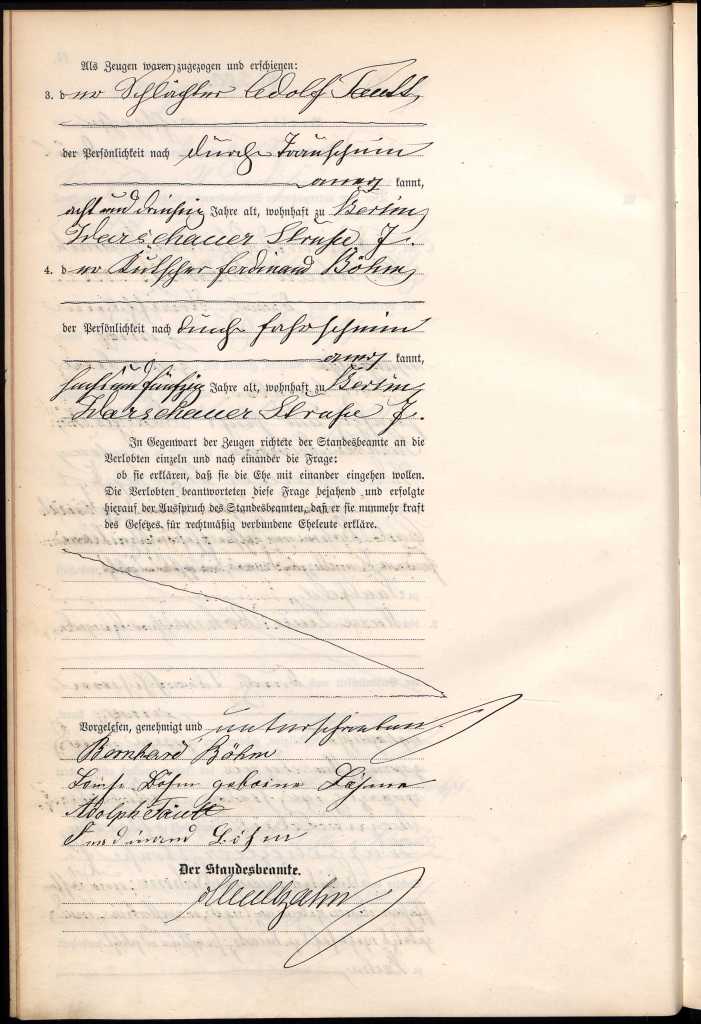 Als Zeugen waren zugezogen und erschienen:
3. der Schlächter Adolf Pautt,
der Persönlichkeit nach durch Trauschein
aner kannt,
acht und dreißig Jahre alt, wohnhaft zu Berlin,
Warschauer Straße 7.
4. der Kutscher Ferdinand Böhm,
der Persönlichkeit nach durch Fahrschein
aner kannt,
sechs und fünfzig Jahre alt, wohnhaft zu Berlin,
Warschauer Straße 7.
In Gegenwart der Zeugen richtete der Standesbeamte an die
Verlobten einzeln und nach einander die Frage:
ob sie erklären, daß sie die Ehe mit einander eingehen wollen.
Die Verlobten beantworteten diese Frage bejahend und erfolgte
hierauf der Ausspruch des Standesbeamten, daß er sie nunmehr kraft
des Gesetzes für rechtmäßig verbundene Eheleute erkläre.
Vorgelesen, genehmigt und unterschrieben.
Bernhard Böhm
Böhm geborene
Adolph
Ferdinand Böhm
Der Standesbeamte.